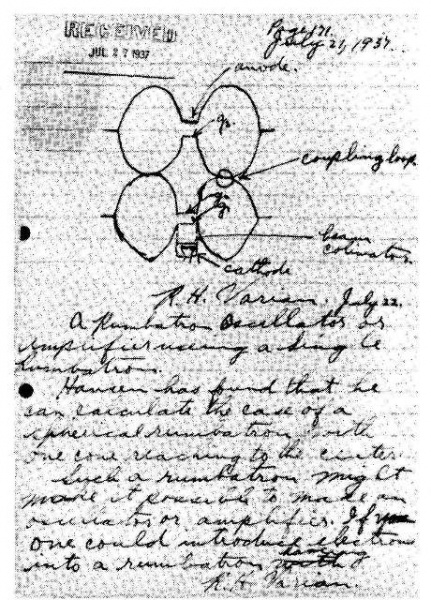 RECEIVED
JUL 27 1937
Page 171.
July 21, 1937.
anode.
g3
coupling loop
g2
g1
beam
colimators.
cathode
R.H. Varian. July 22.
A Rumbatron Oscillator or
amplifier using a single
rumbatron.
Hansen has found that he
can calculate the case of a
spherical rumbatron with
one cone reaching to the center.
Such a rumbatron might
make it possible to make an
oscillator or amplifier. If
one could introduce electrons
into a rumbatron having
R.H. Varian.